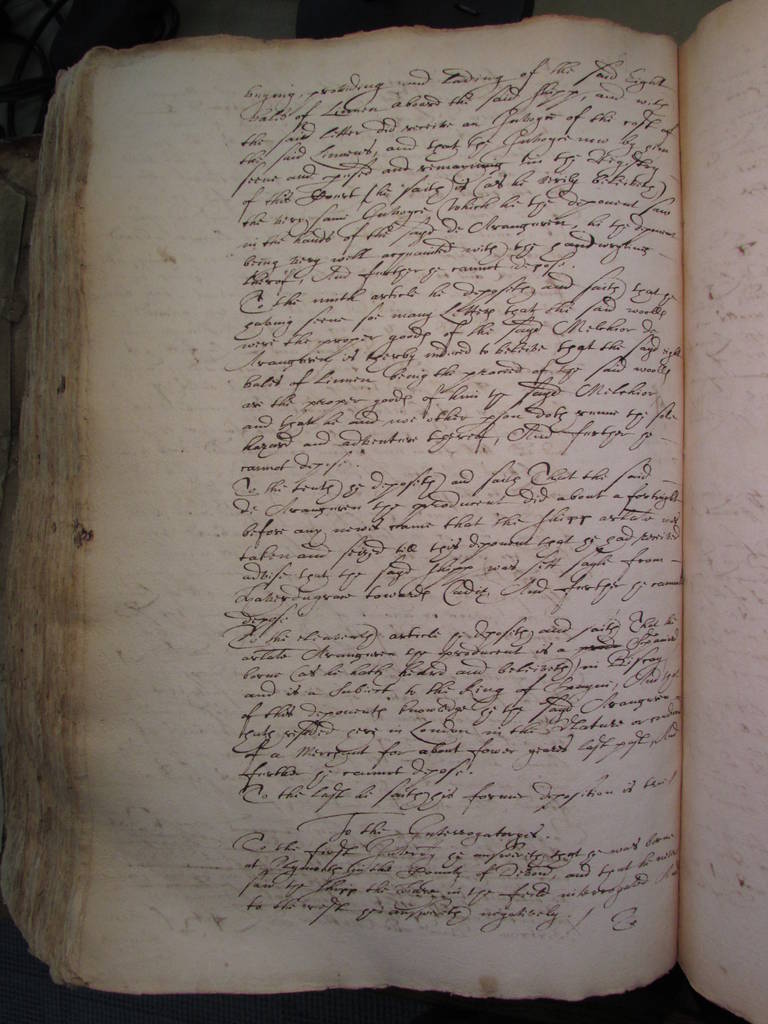 buying, providing and lading of the said Eight
bales of Linnen aboard the said shipp, and with
the said letter did receive an Invoyce of the cost of
the said Linnens, and that the Invoyce now by him
seene and and remaining in the Registry
of this Court he saith is (as he verily beleiveth)
the very same Invoyce which he this deponent saw
in the hands of the sayd de Aranguren, he the deponent
being very well acquainted with the handwriting
thereof, And further he cannot depose.
To the ninth article he deposeth and saith that he
having seene soe many Letters that the said woolls
were the proper goods of the sayd Melchior de
Aranguren is therby induced to beleive that the sayd eight
bales of Linnen being the proceed of the said woolls
are the proper goods of him the sayd Melchior
and that he and noe other person doth runne the sole
hazard and adventure thereof, And further he
cannot depose.
To the tenth he deposeth and saith That the said
de Aranguren the producent did about a fortnight
before any newes came that the shipp arlate was
taken and seized tell this deponent that he had received
advise that the sayd shipp was sett sayle from
towards Cadiz, And further he cannot
depose.
To the eleaventh article he deposeth and saith That the
arlate Aranguren the producent is a Spaniard
borne (as he hath heard and beleiveth) in Biscay
and is a Subiect to the King of Spayne, And
of this deponents knowledge he the sayd Aranguren
hath resided here in London in the Nature or condition
of a Merchant for about fower yeares last past, And
further he cannot depose.
To the last he saith his former deposition is true.
To the Interrogatoryes.
To the first Interry he answereth that he was borne
at Plymouth in the County of Devon, and that he never
saw the shipp the in the first interrogated And
to the rest he answereth negatively.
To